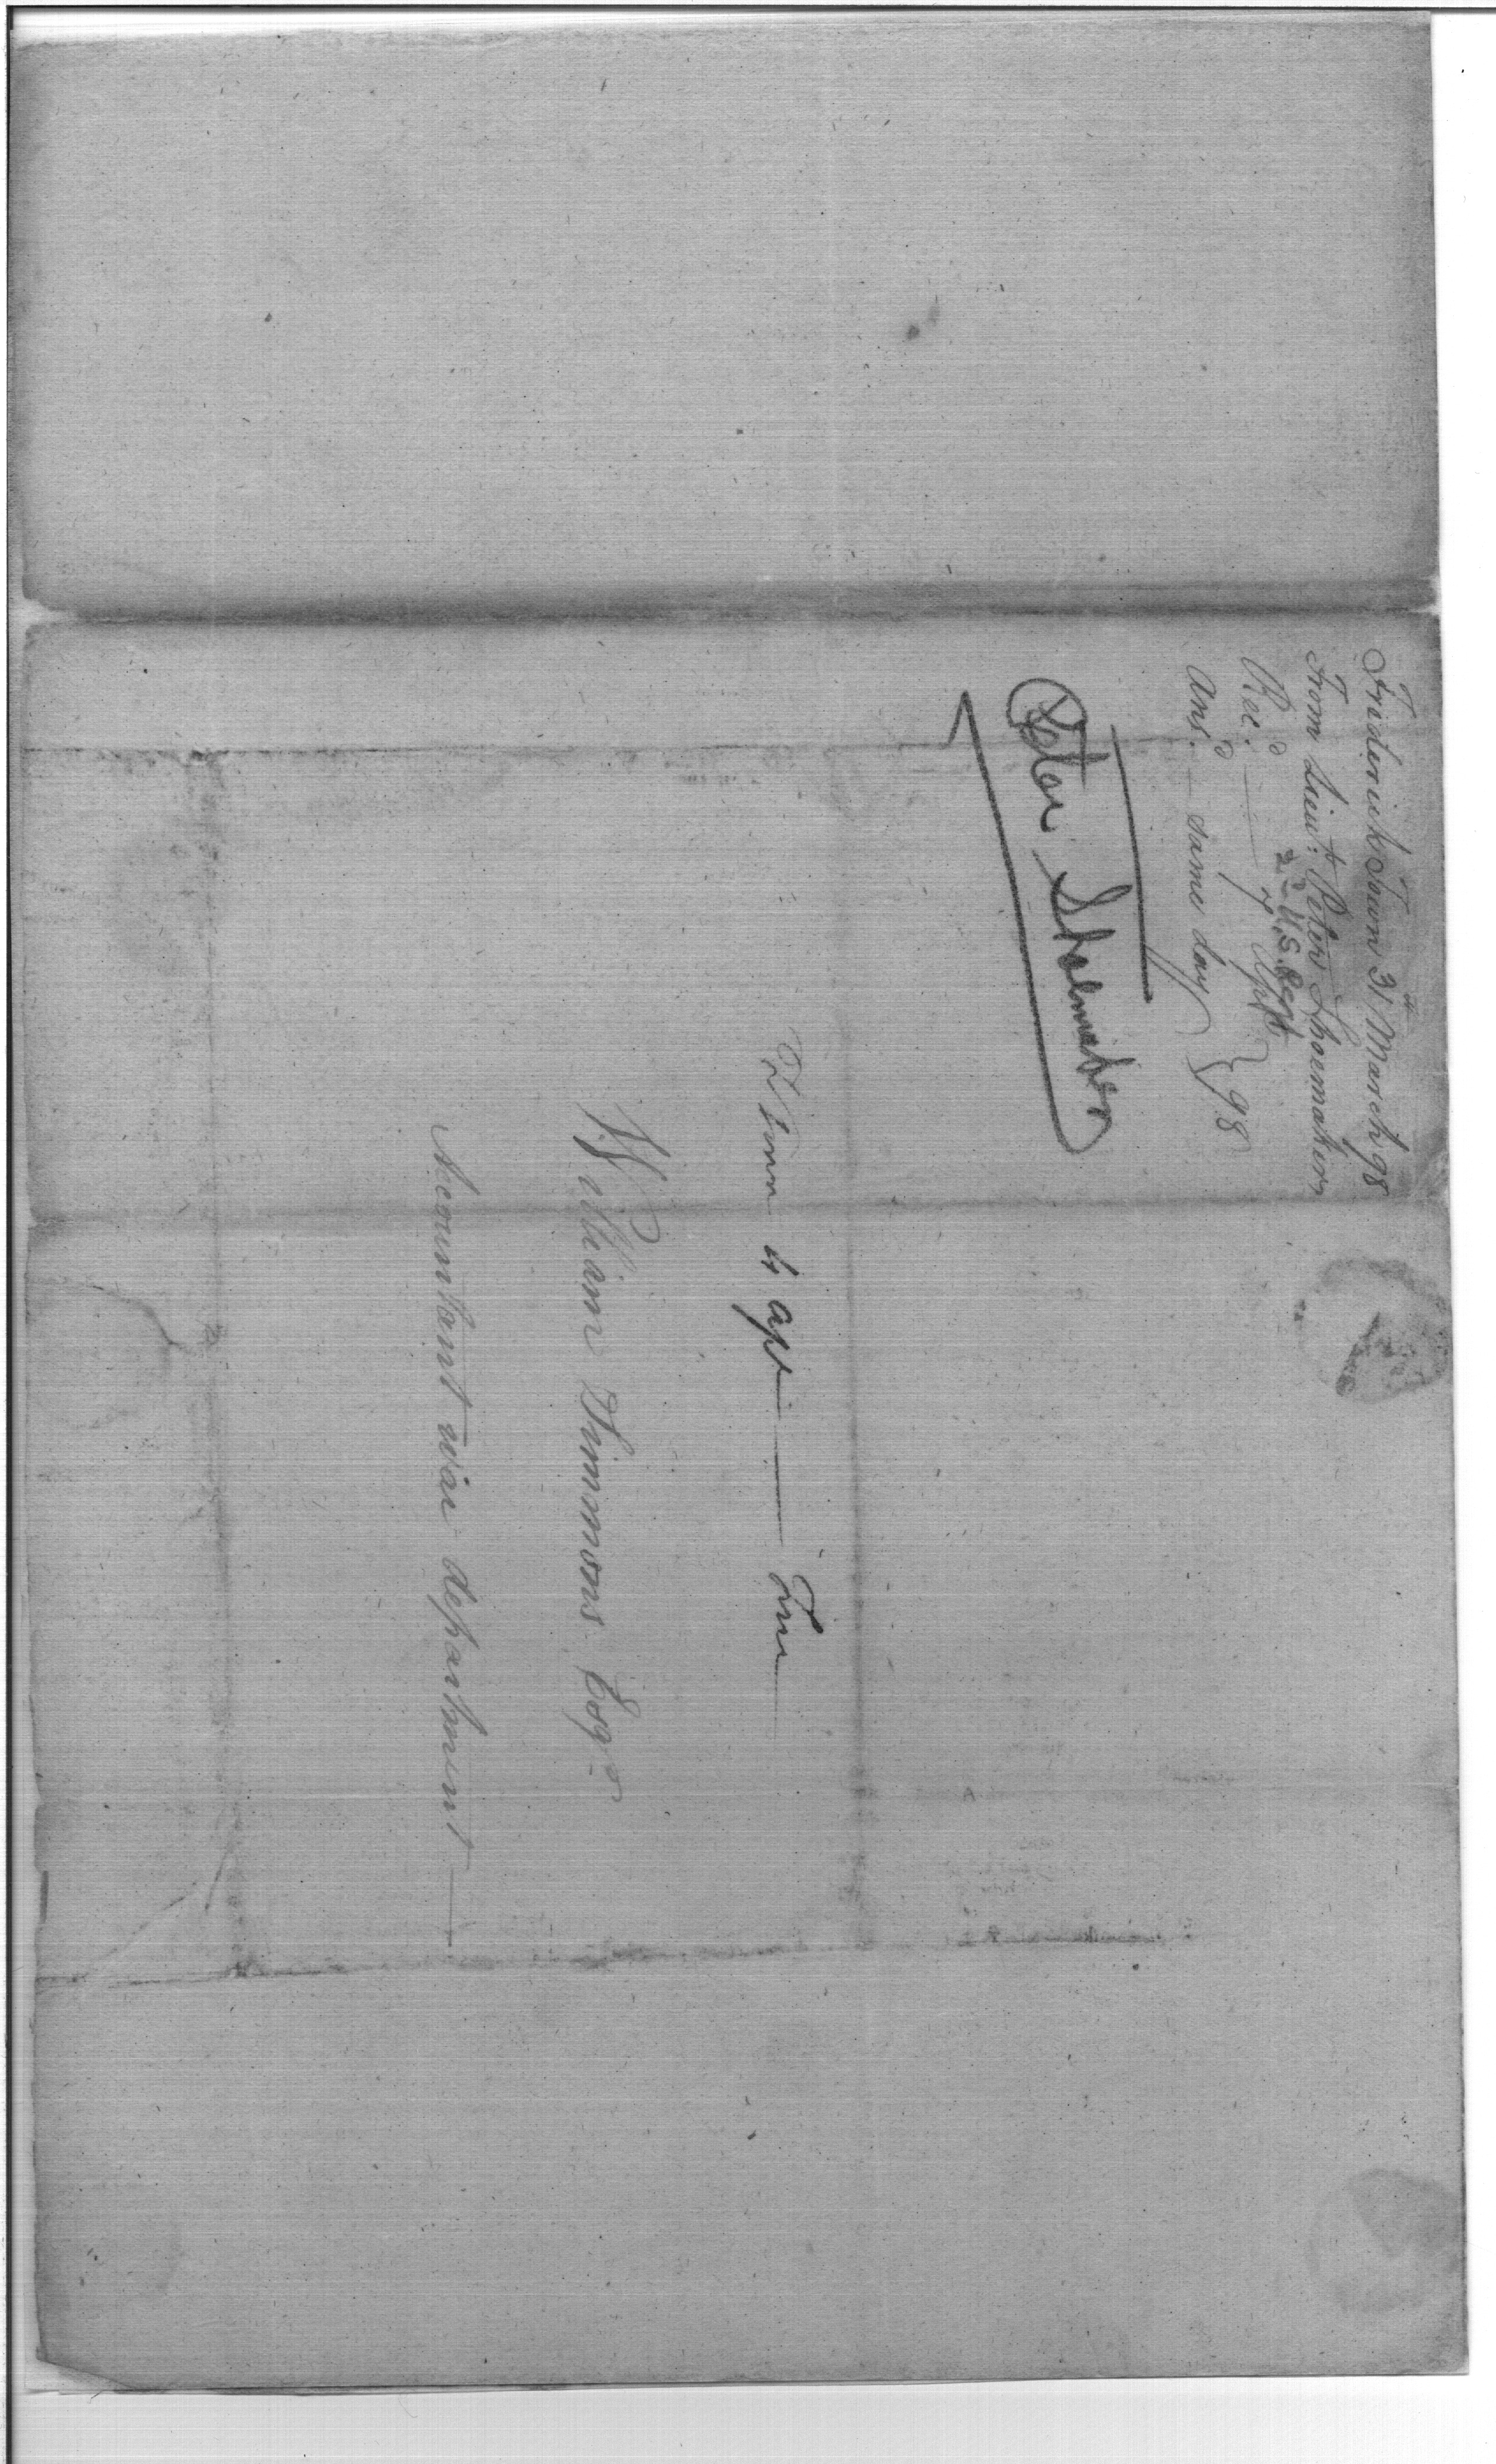 Friderick Town 31st March 98
From Lieut: Peter Shoemaker
2d U.S. Regt
Recd. — 7 Apl
ansd. — same day } 98
Peter Shoemaker
4 apl — Free
William Simmons Esqr
Accountant war department —